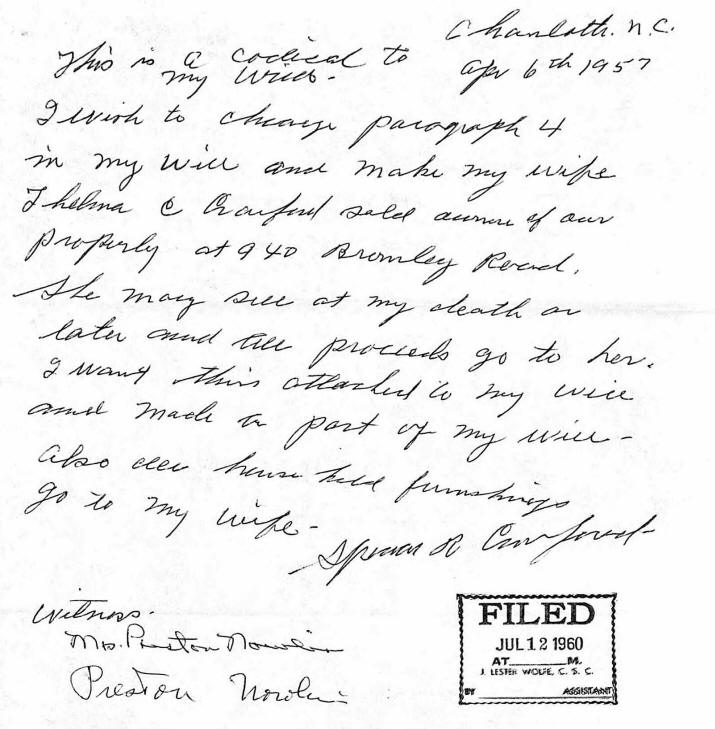 Charlotte. N.C.
Apr 6th 1957
This is a codical to
my will.
I wish to change paragraph 4
in my will and make my wife
Thelma C Crauford sold owner of our
property at 940 Bromley Road.
She may sell at my death or
later and all proceeds go to her.
I want this attached to my will
and made a part of my will -
Also all house hold furnishings
go to my wife -
R Crawford
Witness.
Mrs. Preston Nowlin
Preston Nowlin
FILED
JUL 12 1960
AT M.
J. LESTER WOLFE, C. S. C.
BY ASSISTANT